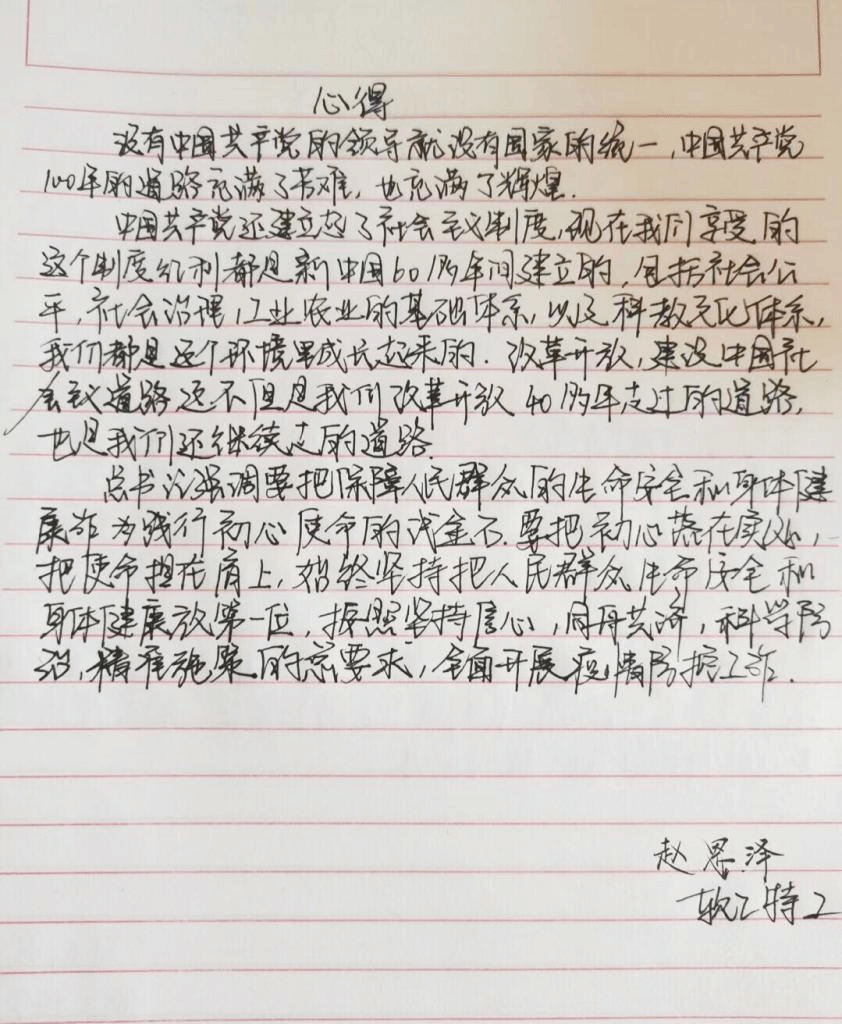 心得
没有中国共产党的领导就没有国家的统一，中国共产党
100年的道路充满了苦难，也充满了辉煌.
中国共产党还建立起了社会主义制度，现在我们享受的
这个制度红利都是新中国60多年间建立的，包括社会公
平，社会治理，工业农业的基础体系，以及科教文化体系，
我们都是这个环境里成长起来的.改革开放，建设中国社
会主义道路还不但是我们改革开放40多年走过的道路，
也是我们还继续走的道路.
总书记强调要把保障人民群众的生命安全和身体健
康作为践行初心使命的试金石.要把初心落在实处，
把使命担在肩上，始终坚持把人民群众生命安全和
身体健康放第一位，按照坚持信心，同舟共济，科学防
治，精准施策的总要求，全面开展疫情防控工作.
赵恩泽
软工特2